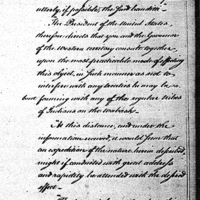 utterly, if possible, the said banditti —
The President of the United States,
therefore directs that you and the Governor
of the Western territory consult together
upon the most practicable mode of effecting
this object, in such manner as not to
interfere with any treaties he may be
forming with any of the regular tribes
of Indians on the Wabash.
At this distance, and under the
information received, it would seem that
an expedition of the nature herein depicted,
might if conducted with great address
and rapidity be attended with the desired
effect —